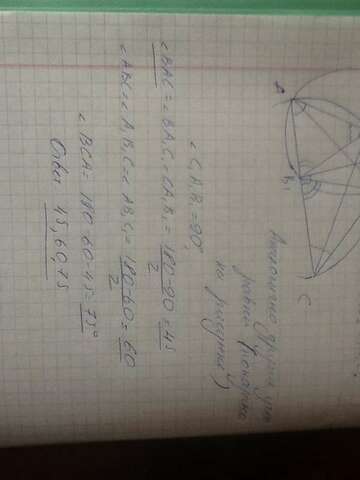 A
B₁
C
Аналогично другие углы
равны (
на рисунке)
∠C₁A₁B₁=90°
∠BAC=∠BA₁C₁=∠CA₁B₁= 180-90/2 =45
∠ABC=∠A₁B₁C=∠AB₁C₁= 180-60/2 =60
∠BCA= 180-60-45=75°
Ответ 45,60,75